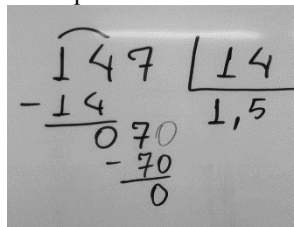 147 14
- 14 1,5
070
- 70
0